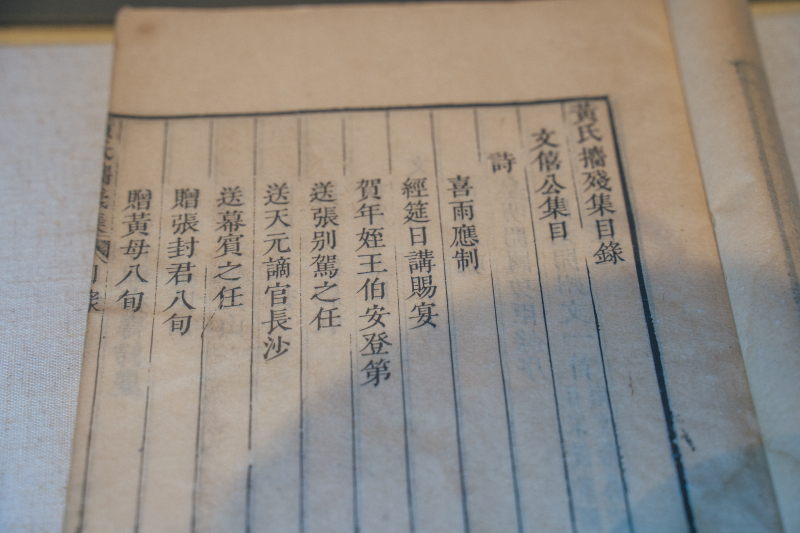 黃氏攟殘集目錄
文僖公集目
詩
喜雨應制
經筵日講賜宴
賀年姪王伯安登第
送張別駕之任
送天元謫官長沙
送幕賓之任
贈張封君八旬
贈黃母八旬